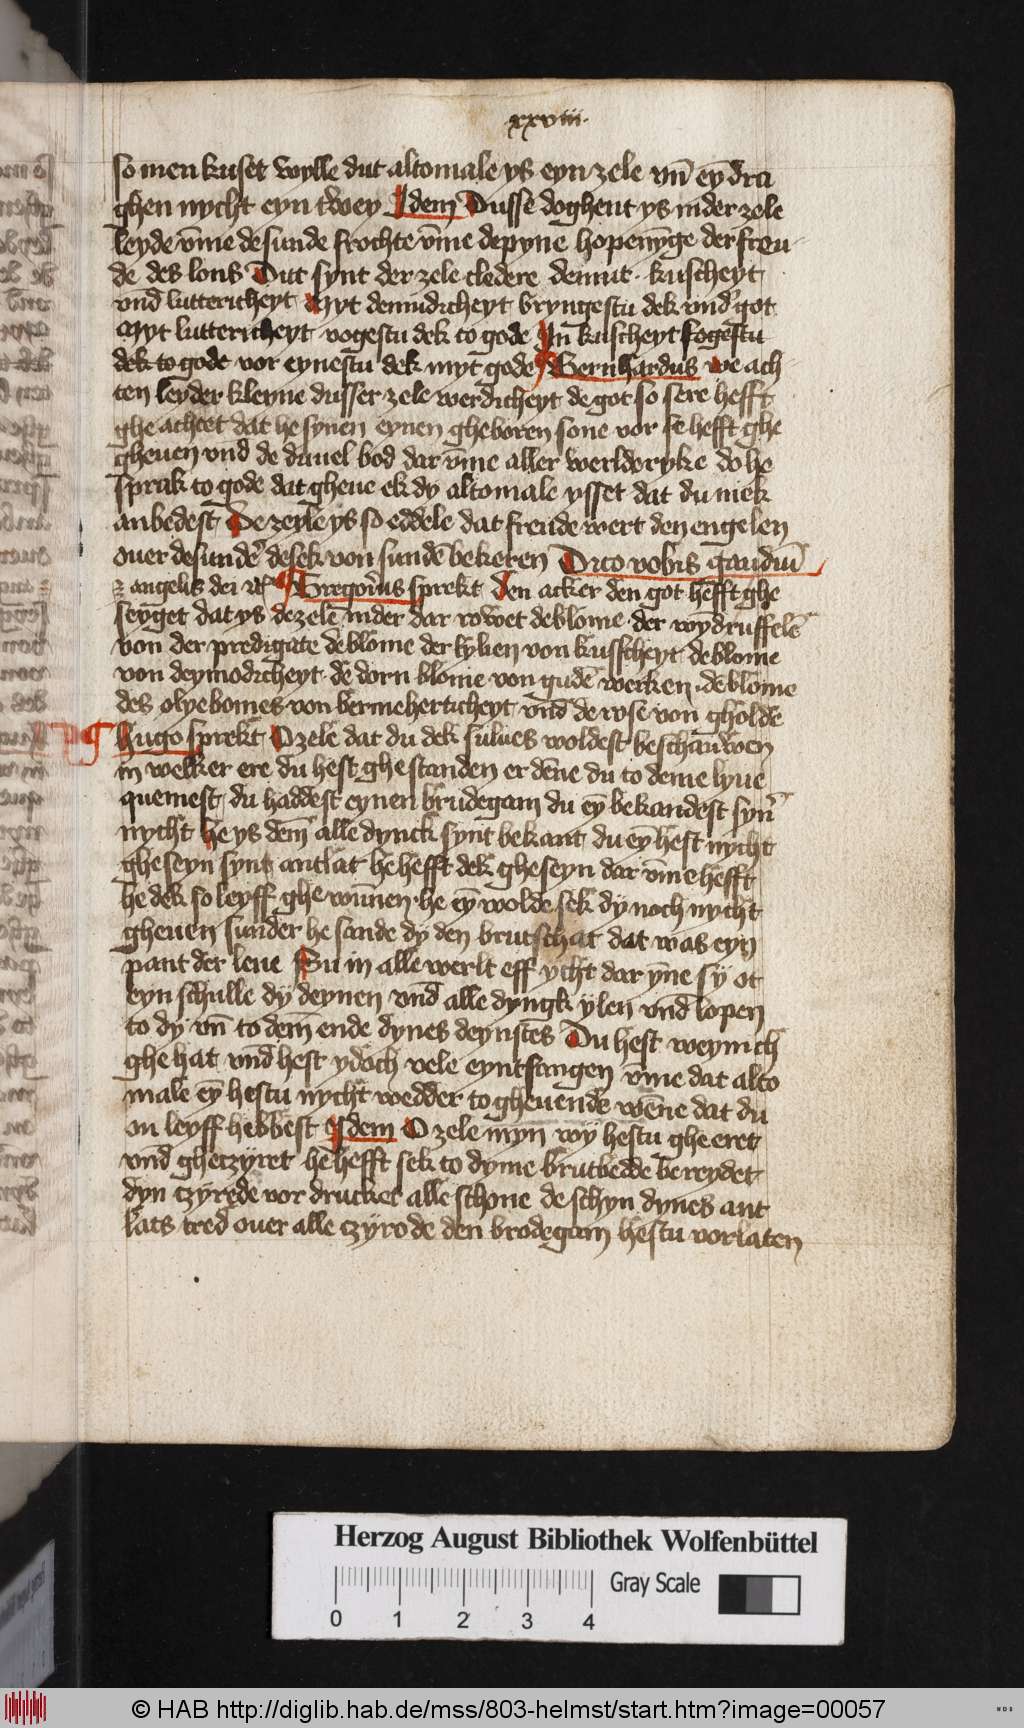 xxviii.
so men kuset wylle dut altomale ys eyn zele vn̄ eȳ dra
ghen nycht eyn twey Idem Dusse doghent ys in der zele
leyde vm̄e de sunde frochte vm̄e de pyne hopenȳge der frou
de des lons Dut synt der zele cledere demut · kuscheyt
vnd luttericheyt Myt demudicheyt bryngestu dek vnd'got
Myt luttericheyt vogestu dek to gode In kuscheyt fogestu
dek to gode vor eynestu dek myt gode Bernhardus we ach
ten leyder kleyne dusser zele werdicheyt de got so sere hefft
ghe achtet dat he synen eynen gheboren sone vor se hefft ghe
gheuen vnd de duuel bod dar vm̄e aller werlde ryke do he
sprak to gode dat gheue ek dy altomale ysset dat du mek
anbedest De zeyle ys so eddele dat freude wert den engelen
ouer de sunder de sek von sundē bekeren Dico vobis gaudiū
ē angelis dei rc̄ Gregori9us sprekt Den acker den got hefft ghe
seyget dat ys de zelē in der dar rowet de blome · der wydruffelē
von der predigate de blome der lylien von kusscheyt · de blome
von deymodicheyt · de dorn blome von gudē werken · de blome
des olyebomes von bermeherticheyt vnd de rose von gholde
Hugo sprekt O zele dat du dek sulues woldest beschauwen
in welker ere du hest ghestanden er dēne du to deme lyue
quemest du haddest eynen brudegam du eȳ bekandest syn̄
nycht he ys dem alle dynck synt bekant du eȳ hest nycht
gheseyn synt antlat he hefft dek gheseyn dar vm̄e hefft
he dek so leyff ghe wūnen · he eȳ wolde sek dy noch nycht
gheuen sunder he sande dy den brutschat dat was eyn
pant der leue Su in alle werlt eff ycht dar ȳne sy ot
eyn schulle dy deynen vnd alle dyngk ylen vnd lopen
to dy vn̄ to dem ende dynes deynstes Du hest weynich
ghe hat vnd hest ydoch vele eyntfangen vm̄e dat alto
male eȳ hestu nycht wedder to gheuende wēne dat du
on leyff hebbest Idem O zele myn wy hestu gheeret
vnd gheczyret he hefft sek to dyme brutbedde bereydet
dyn czyrede vor drucket alle schone de schyn dynes ant
lats tred ouer alle czyrode den brodegam hestu vorlaten
Herzog August Bibliothek Wolfenbüttel
Gray Scale
0 1 2 3 4
© HAB http://diglib.hab.de/mss/803-helmst/start.htm?image=00057